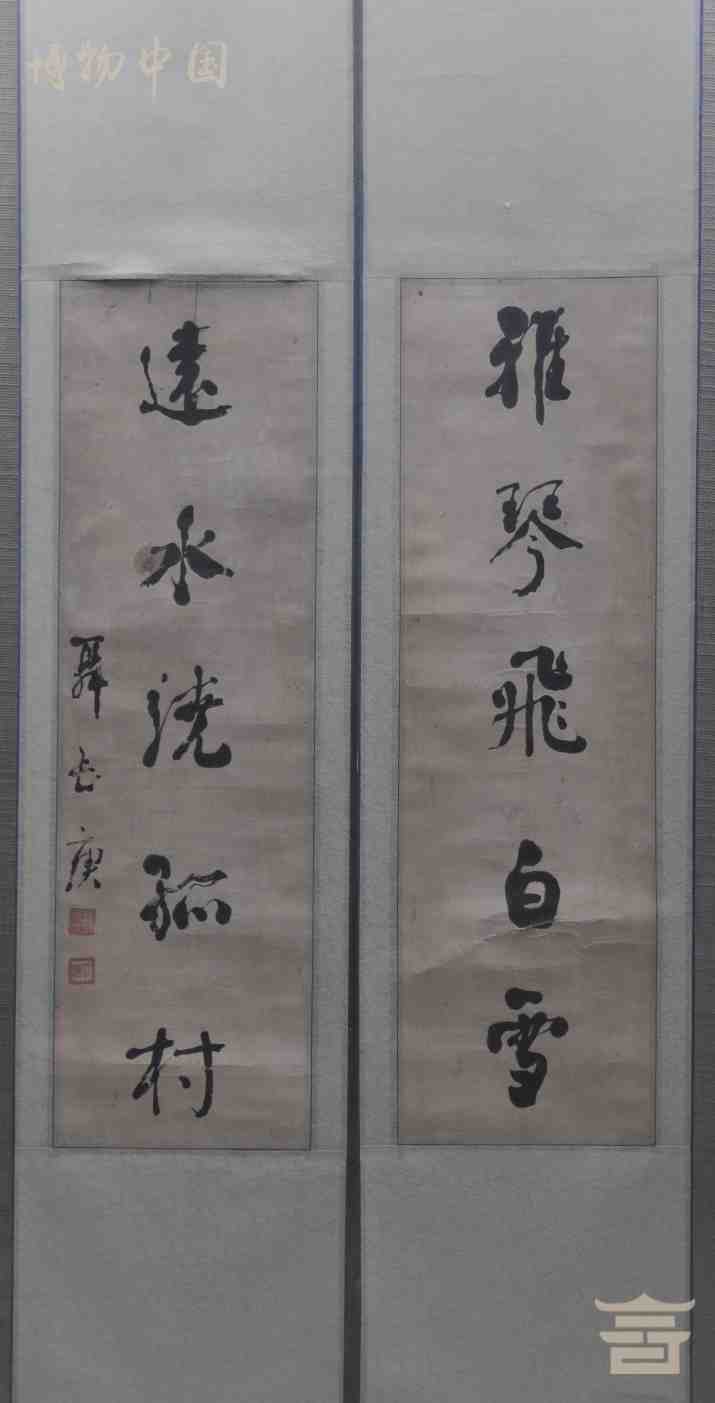 博物中国
雅琴飛白雪
遠水澆孤村
聶長庚